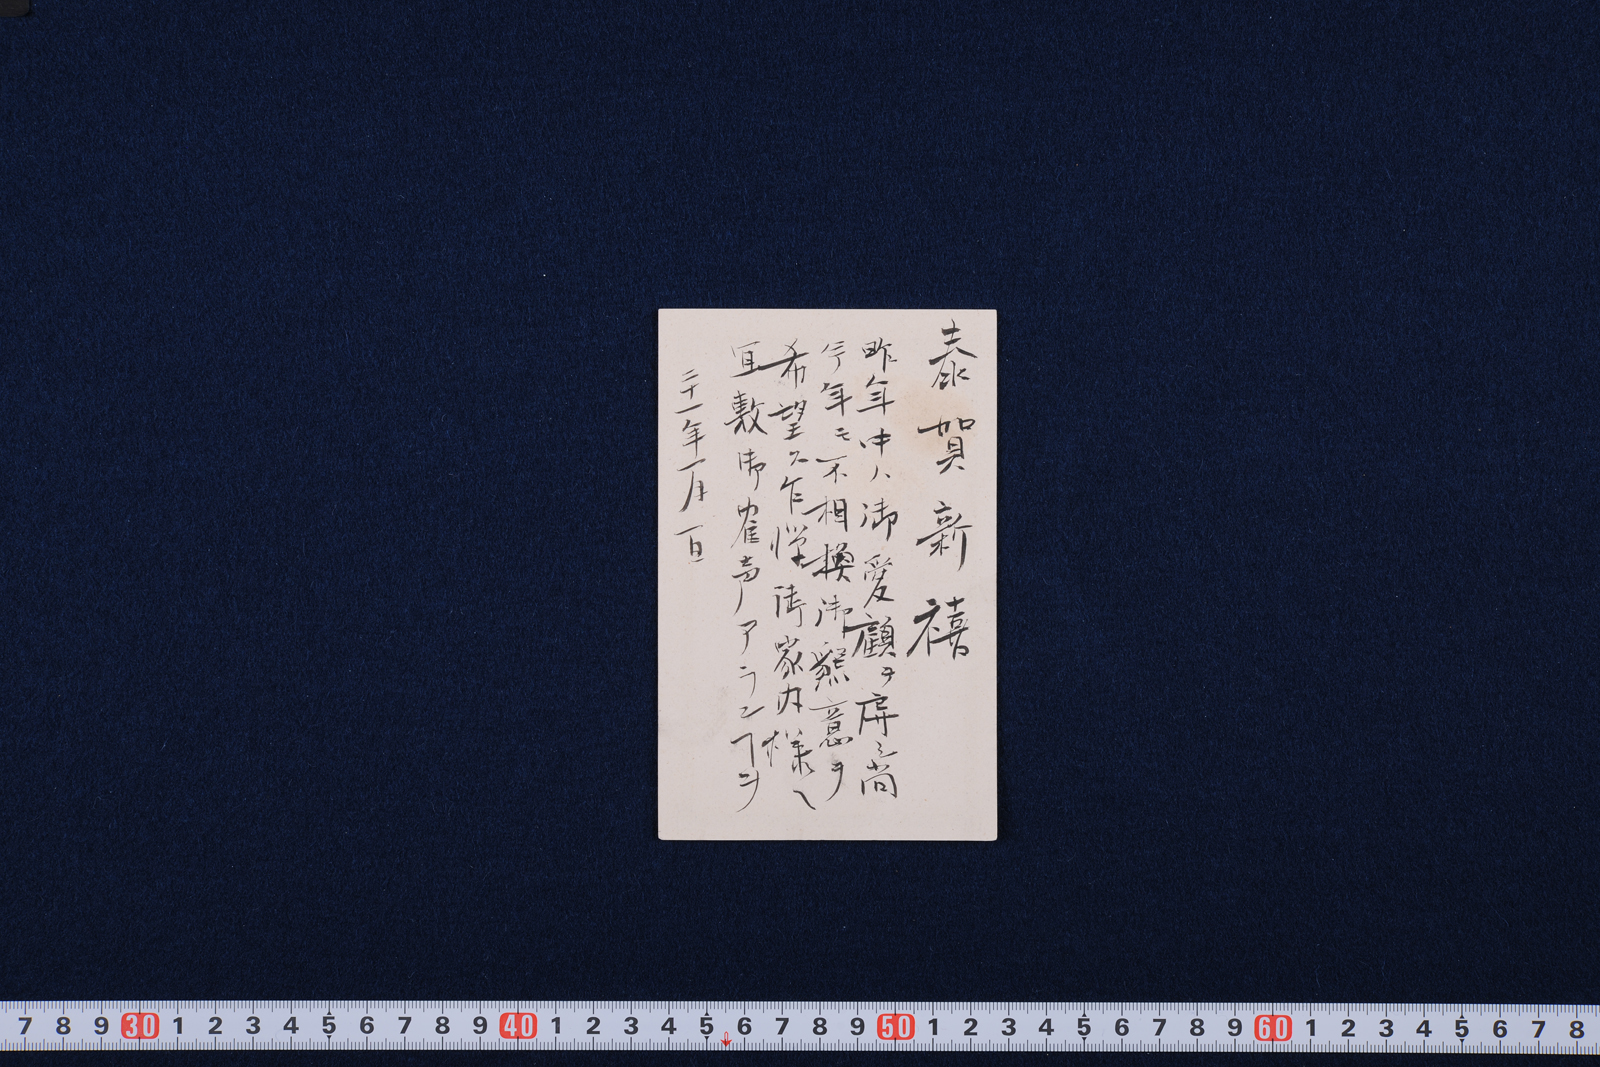 恭賀新禧
昨年中ハ御愛顧ヲ辱シ尚
今年モ不相換御懇意ヲ
希望ス乍憚御家内様へ
宜敷御鶴声アランヿヲ
二十一年一月一日
7 8 9 30 1 2 3 4 5 6 7 8 9 40 1 2 3 4 5 6 7 8 9 50 1 2 3 4 5 6 7 8 9 60 1 2 3 4 5 6 7 8